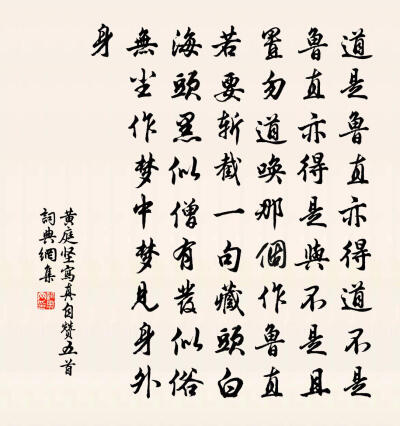 道是魯直亦得道不是
魯直亦得是與不是且
置勿道喚那個作魯直
若要斬截一句藏頭白
海頭黑似僧有髮似俗
無尘作梦中梦見身外
身
黄庭坚寫真自赞五首
詞典網集